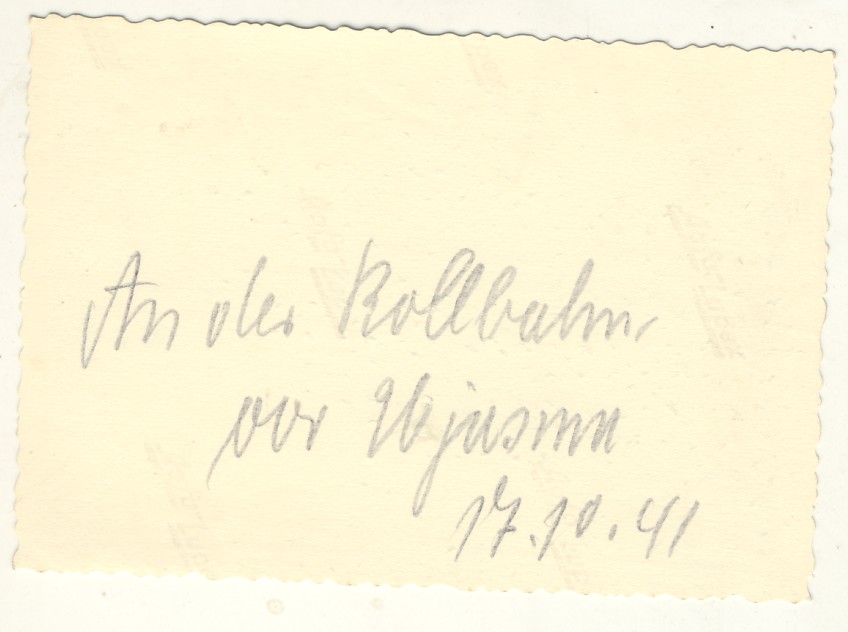 An der Rollbahn
vor Wjasma
17.10.41